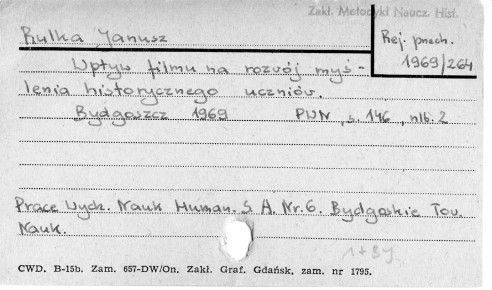 Zakł. Metodyki Naucz. Hist.
Rulka Janusz
Rej. pnach.
1969/264
Wpływ filmu na rozwój myś-
lenia historycznego uczniów.
Bydgoszcz 1969 PWN, s. 146, nlb. 2
Prace Wydz. Nauk Human. S. A. Nr. 6. Bydgoskie Tow.
Nauk.
CWD. B-15b. Zam. 657-DW/On. Zakł. Graf. Gdańsk, zam. nr 1795.